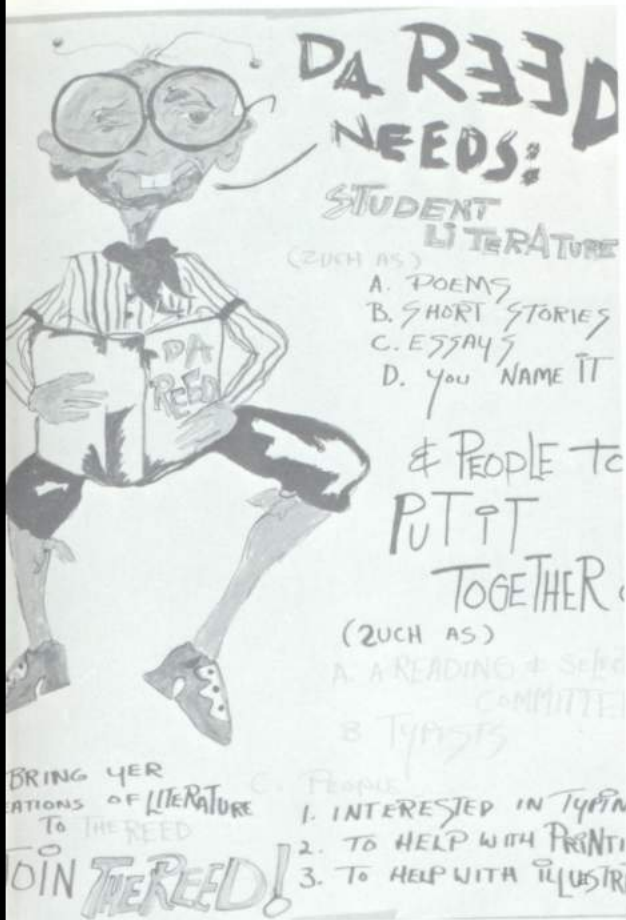 DA REED
NEEDS:
STUDENT
LITERATURE
(ZUCH AS)
A. POEMS
B. SHORT STORIES
C. ESSAYS
D. YOU NAME IT
DA
REED
& PEOPLE TO
PUT IT
TOGETHER
(ZUCH AS)
A. A READING & SELEC
COMMITTE
B TYPISTS
C. PEOPLE
1. INTERESTED IN TYPIN
2. TO HELP WITH PRINTI
3. TO HELP WITH ILLUSTR
BRING YER
EATIONS OF LITERATURE
TO THE REED
JOIN THE REED!